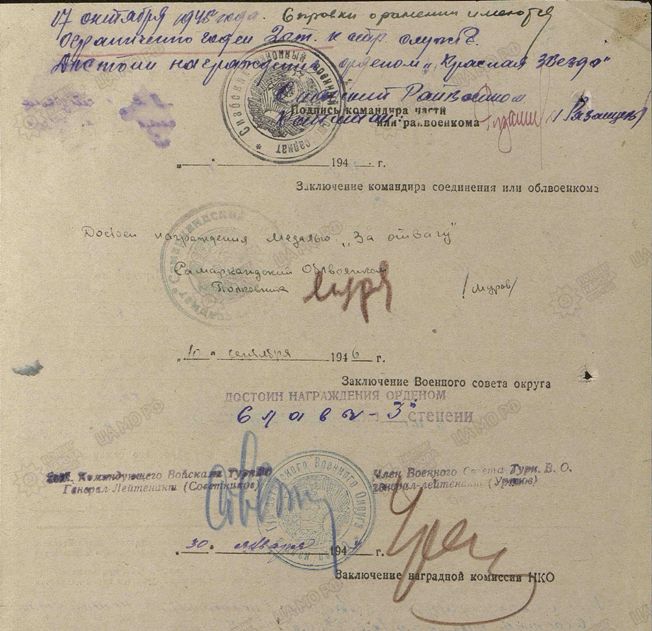 17 октября 1945 года. Справки о ранении имеются
Ограниченно годен 2 ст. к стр. службе.
Достоин награждения орденом „Красная Звезда"
Райвоенком
Подпись командира части
или райвоенкома
194 г.
Заключение командира соединения или облвоенкома
Достоин награждения медалью „За отвагу"
Самаркандский Облвоенком
Полковник /Муров/
„10" сентября 1946 г.
Заключение Военного совета округа
ДОСТОИН НАГРАЖДЕНИЯ ОРДЕНОМ
Славы - 3й СТЕПЕНИ
Командующего Войсками ТуркВО
Генерал-Лейтенант (Советников)
Член Военного Совета Турк. В. О.
Генерал-лейтенант
„30" января 194 г.
Заключение наградной комиссии НКО
ЦАМО.РФ